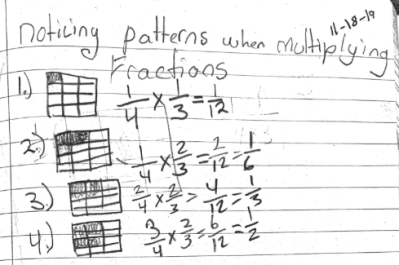 11-18-19
noticing patterns when multiplying
Fractions
1.) 1/4 × 1/3 = 1/12
2.) 1/4 × 2/3 = 2/12 = 1/6
3.) 2/4 × 2/3 = 4/12 = 1/3
4.) 3/4 × 2/3 = 6/12 = 1/2